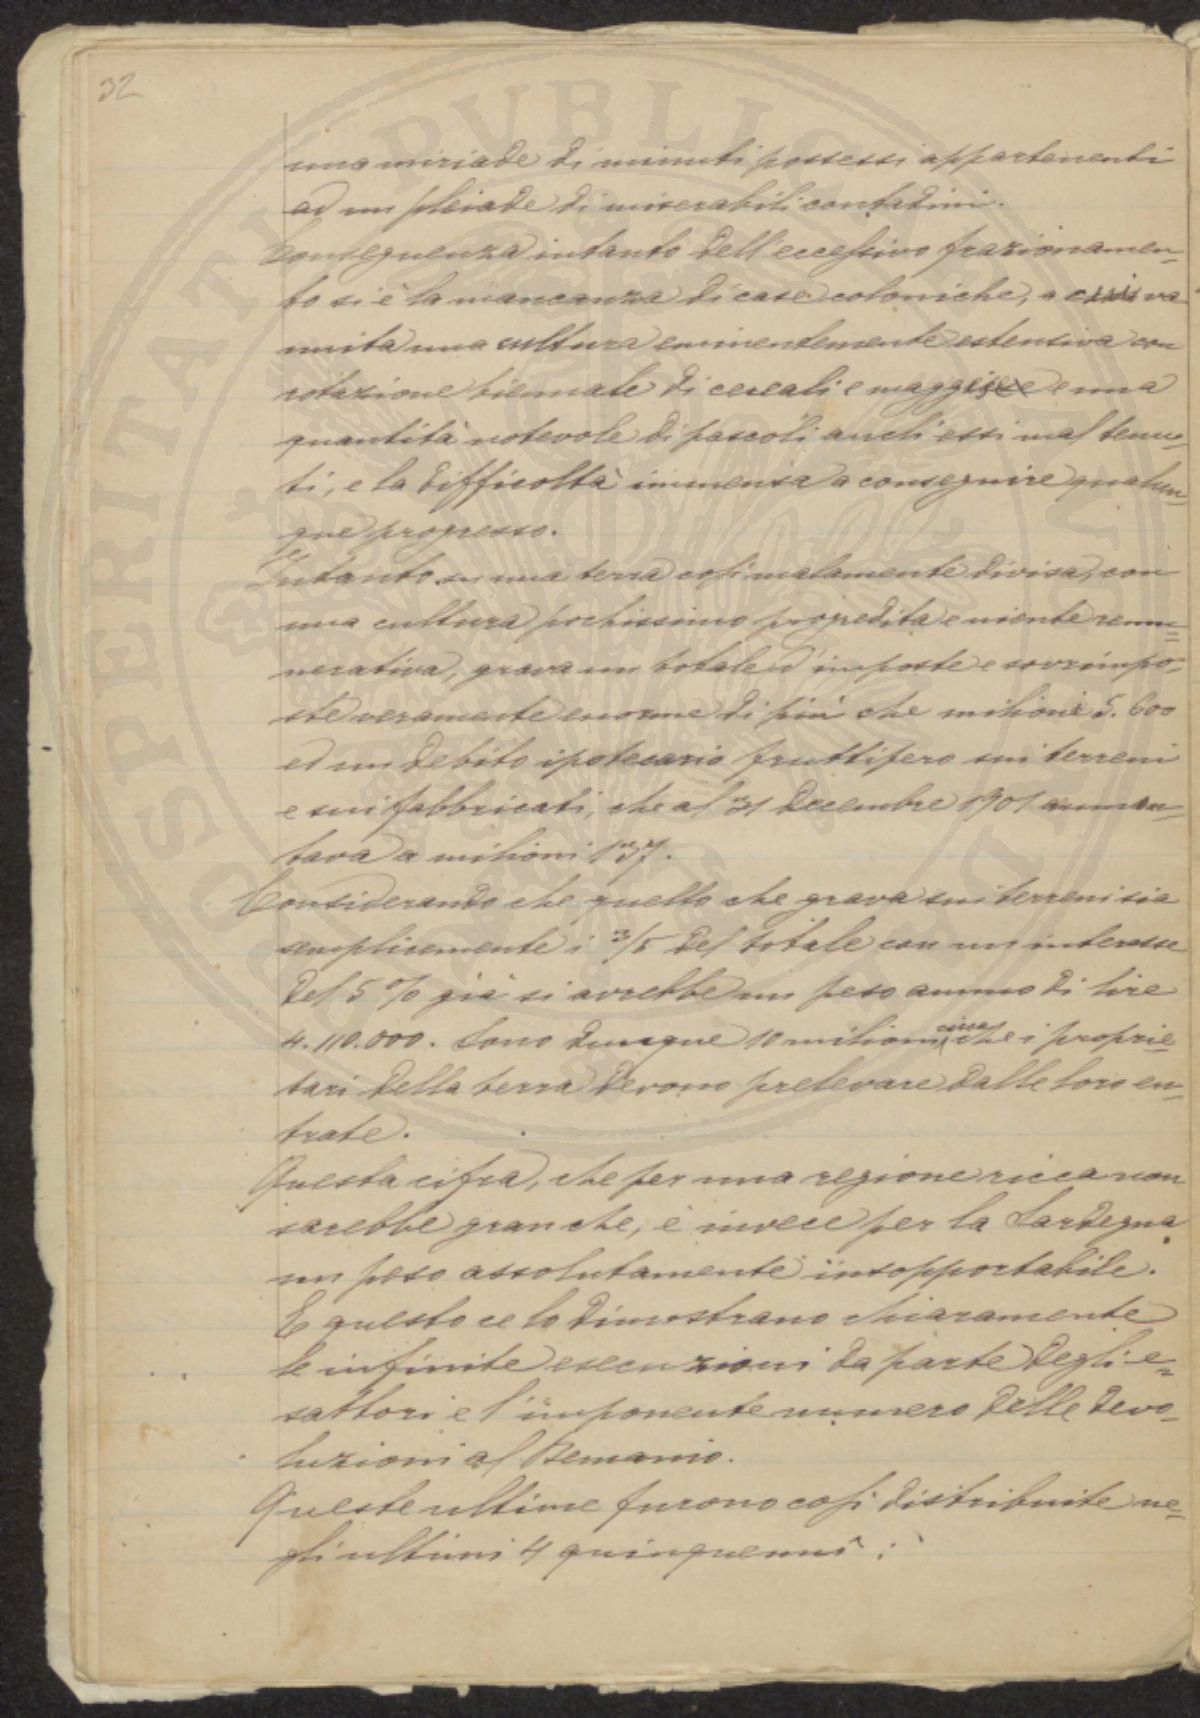 32
una miriade di minuti possessi appartenenti
ad un pleiade di miserabili contadini.
Conseguenza intanto dell'eccessivo frazionamen=
to si è la mancanza di case coloniche, a cui va
unita una cultura eminentemente estensiva con
rotazione biennale di cereali e maggese e una
quantità notevole di pascoli anch'essi mal tenu=
ti, e la difficoltà immensa a conseguire qualun=
que progresso.
Intanto su una terra così malamente divisa, con
una cultura pochissimo progredita e niente remu=
nerativa, grava un totale d'imposte e sovrimpo=
ste veramente enorme di più che milioni 5.600
ed un debito ipotecario fruttifero sui terreni
e sui fabbricati, che al 31 Decembre 1901 ammon=
tava a milioni 137.
Considerando che quello che grava sui terreni sia
semplicemente i 3/5 del totale con un interesse
del 5% già si avrebbe un peso annuo di lire
4.110.000. Sono dunque 10 milioni circa che i proprie=
tari della terra devono prelevare dalle loro en=
trate.
Questa cifra, che per una regione ricca non
sarebbe gran che, è invece per la Sardegna
un peso assolutamente insopportabile.
E questo ce lo dimostrano chiaramente
le infinite esecuzioni da parte degli e=
sattori e l'imponente numero delle devo=
luzioni al Demanio.
Queste ultime furono così distribuite ne=
gli ultimi 4 quinquenni: